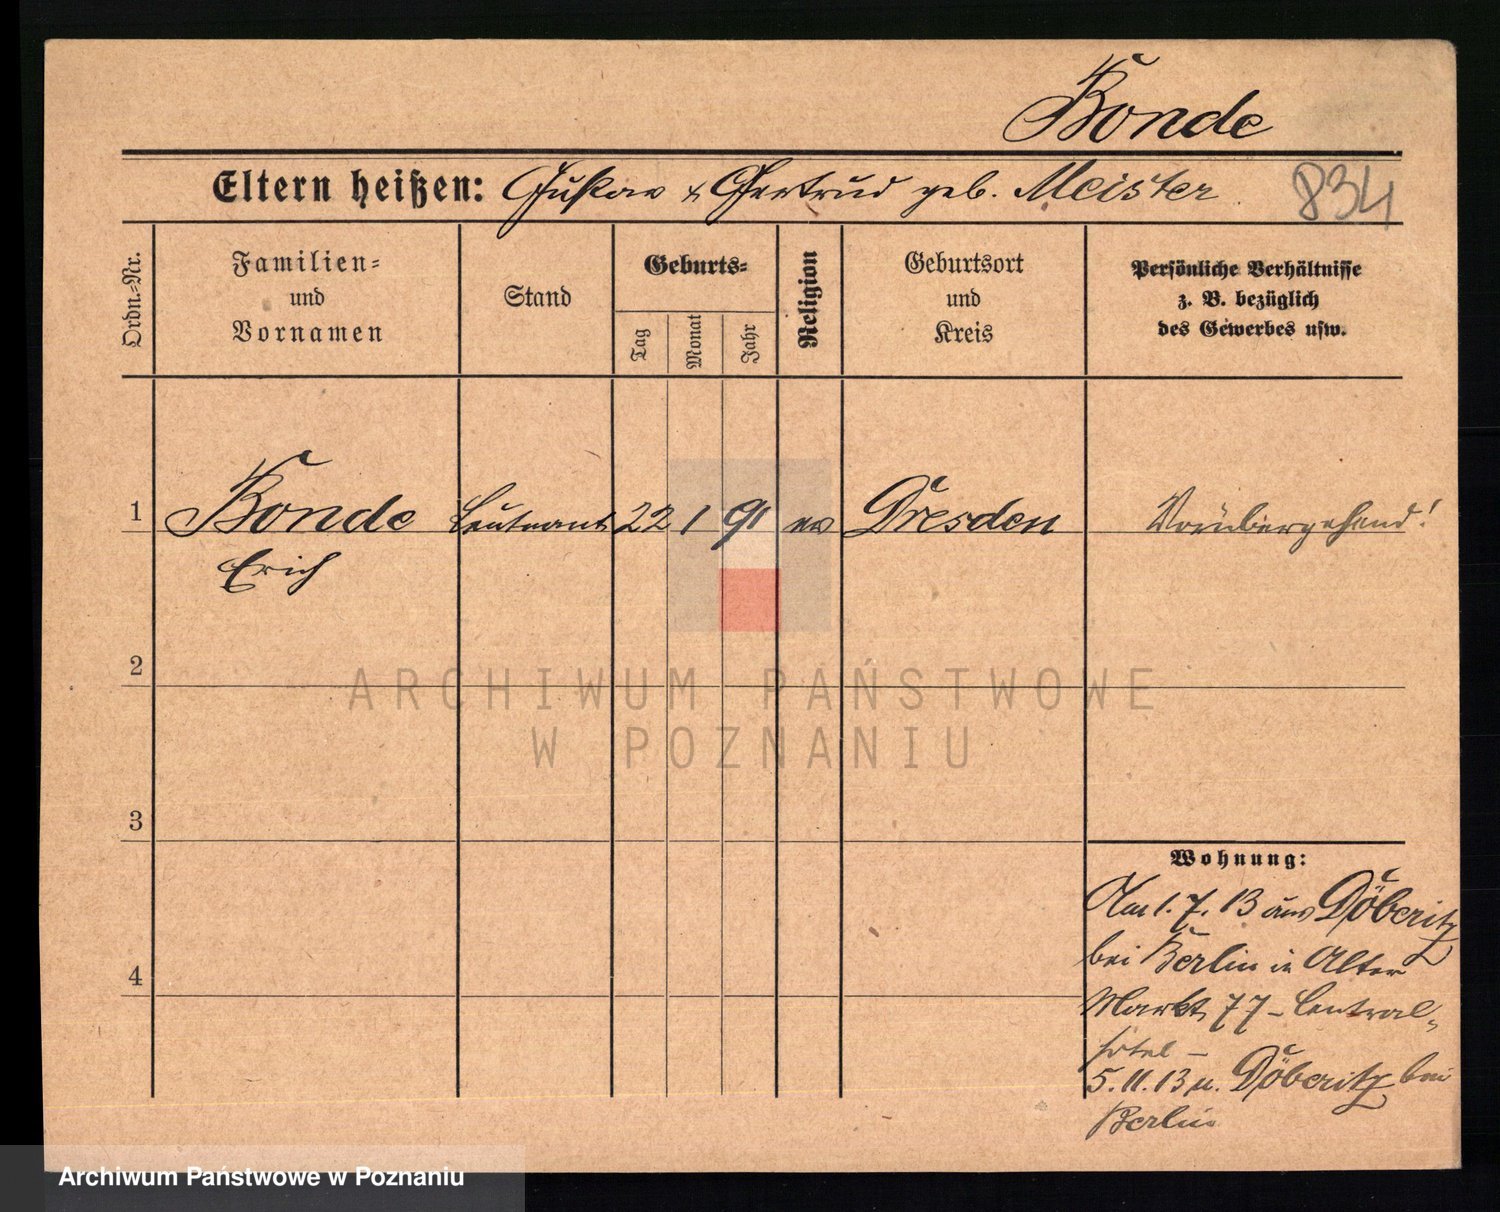 Bonde
Eltern heißen: Gustav & Gertrud geb. Meister
834
Ordn.-Nr.
Familien-
und
Vornamen
Stand
Geburts-
Tag
Monat
Jahr
Religion
Geburtsort
und
Kreis
Persönliche Verhältnisse
z. B. bezüglich
des Gewerbes usw.
1 Bonde Leutnant 22 1 91 ev Dresden Vorübergehend!
Erich
2
3
4
Wohnung:
Am 1. 7. 13 aus Döberitz
bei Berlin in Alter
Markt 77 – Central-
hotel –
5. 11. 13 n. Döberitz bei
Berlin
ARCHIWUM PAŃSTWOWE
W POZNANIU
Archiwum Państwowe w Poznaniu